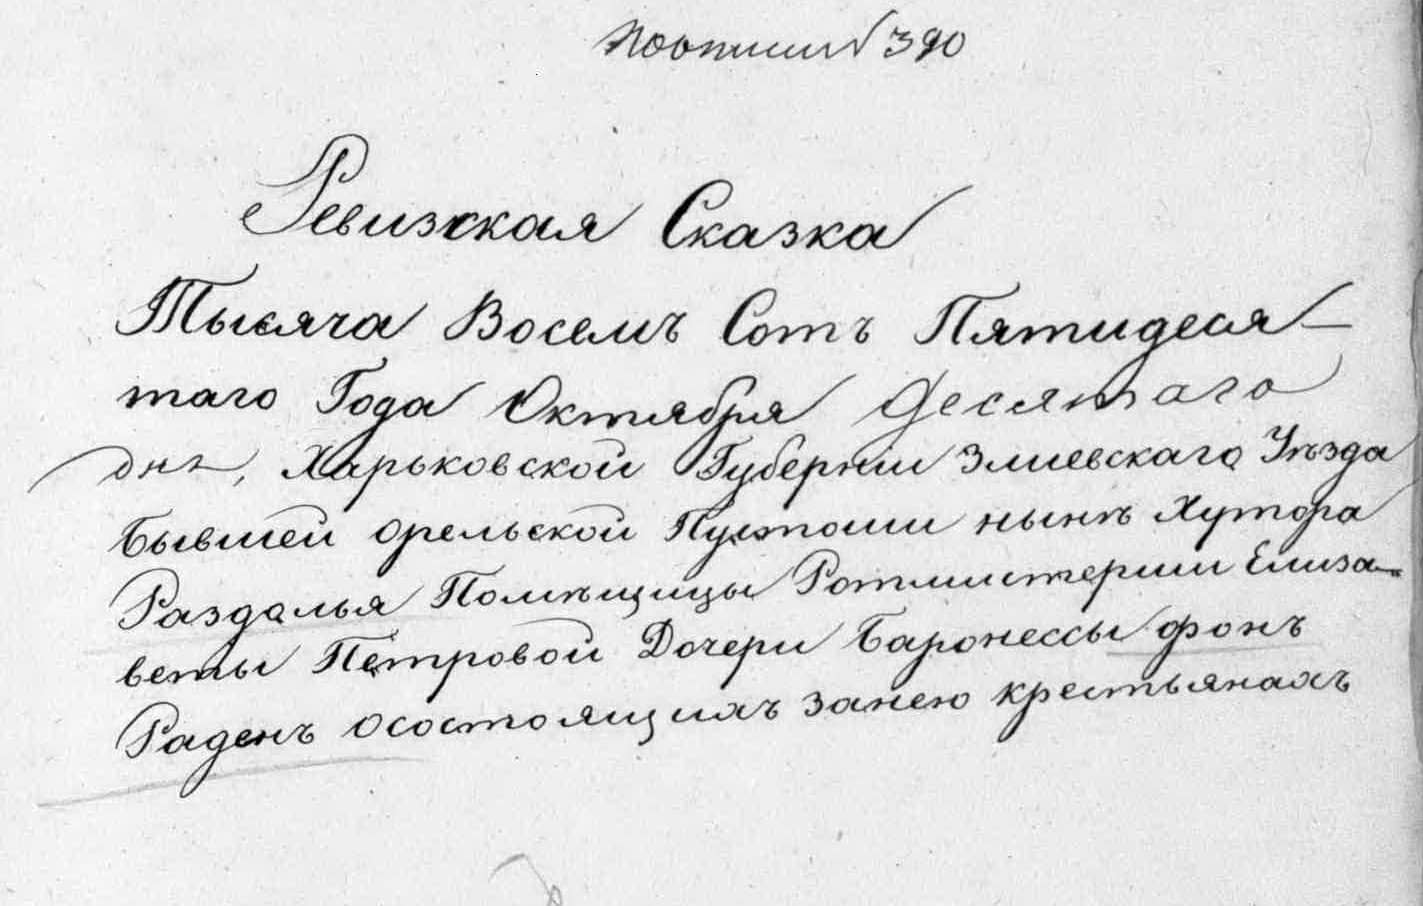 По описи № 390
Ревизская Сказка
Тысяча Восемъ Сотъ Пятидеся-
таго Года Октября Десятаго
дня, Харьковской Губернiи Змиевскаго Уѣзда
Бывшей Орельской Пустоши нынѣ Хутора
Раздолья Помѣщицы Ротмистерши Елиза-
веты Петровой Дочери Баронессы фонъ
Раденъ осостоящихъ занею крестьянахъ